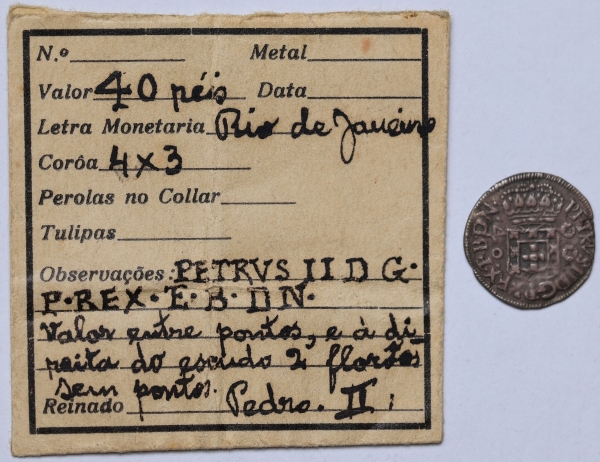 N.º Metal
Valor 40 réis Data
Letra Monetaria Rio de Janeiro
Corôa 4x3
Perolas no Collar
Tulipas
Observações: PETRVS II D G.
P. REX. E. B. D N.
Valor entre pontos, e à di-
reita do escudo 2 florões
sem pontos.
Reinado Pedro. II;